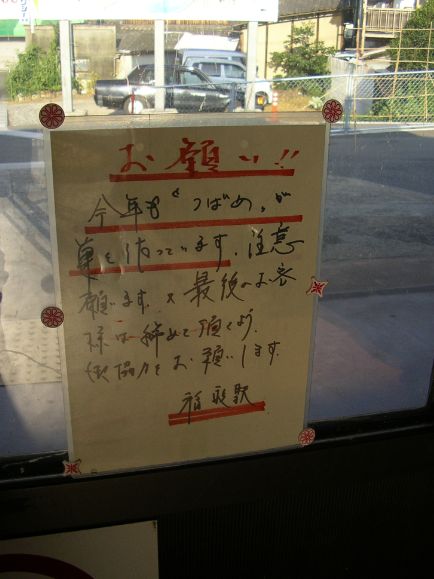 お願い!!
今年も〝つばめ〟が
巣を作っています。注意
願います。又最後のお客
様は締めて頂くよう、
御協力をお願いします。
駅